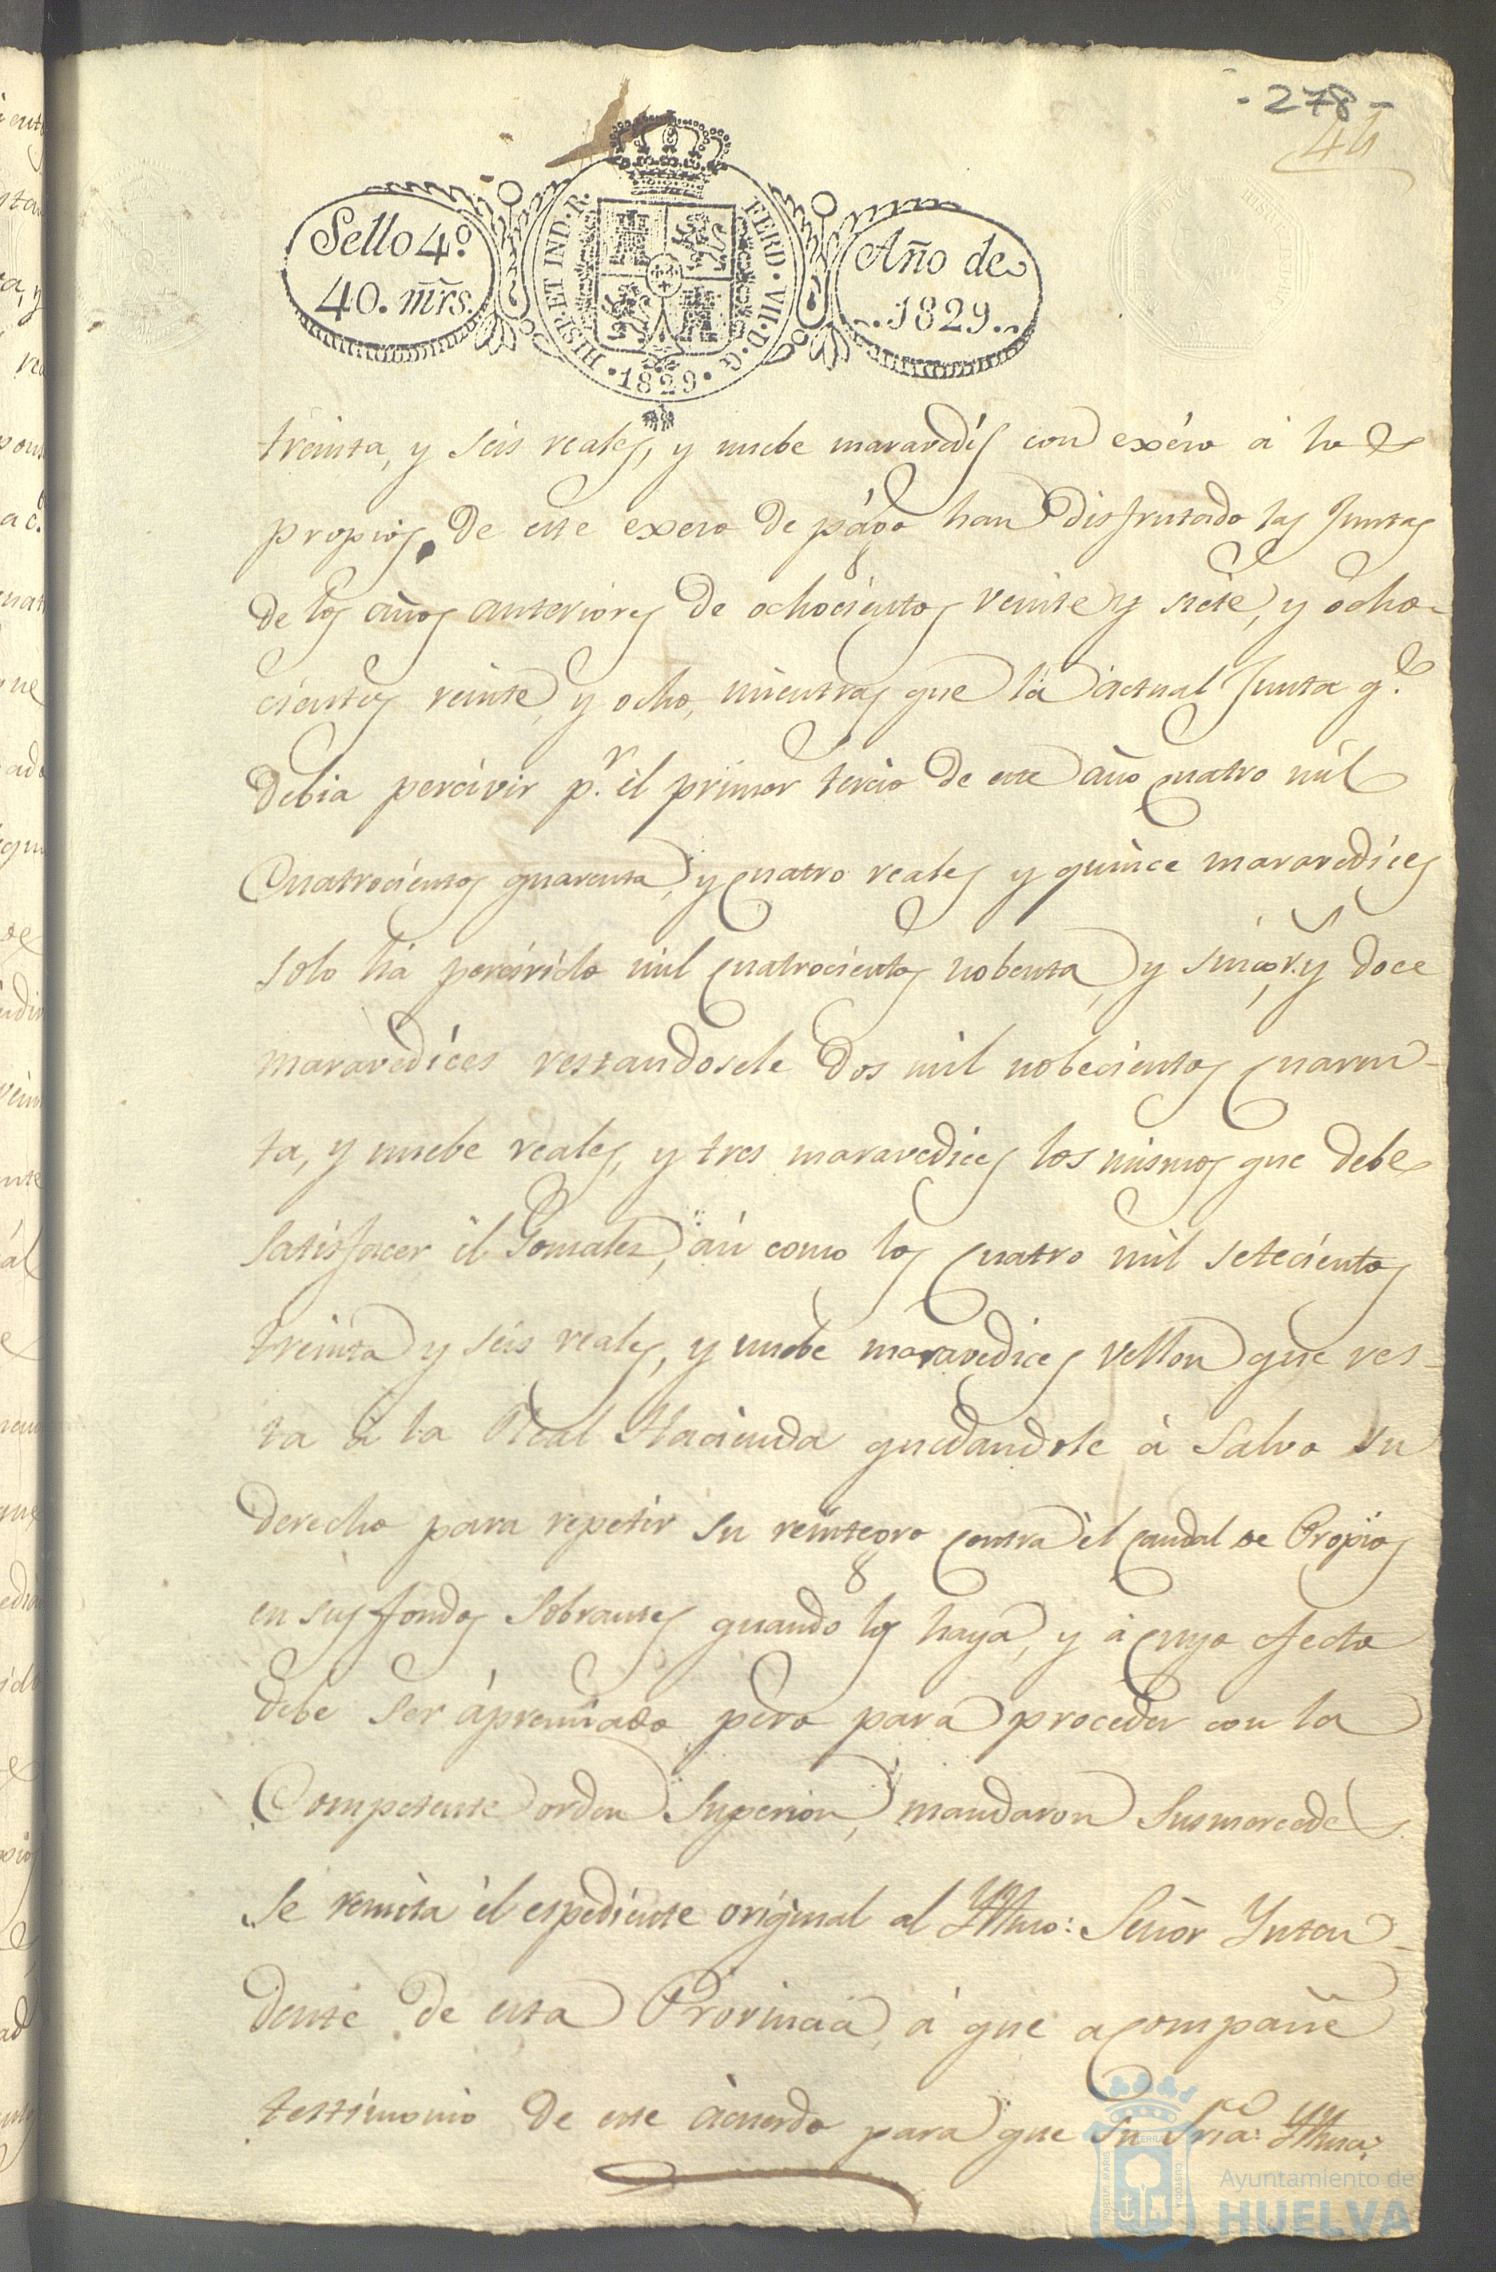 - 278 -
44
Sello 4º
40. mrs.
HISP. ET IND. R. FERD. VII. D. G.
· 1829 ·
Año de
1829.
treinta, y seis reales, y nuebe maravedís con exéso á los
propios. De este exeso de págo han disfrutado las Juntas
de los años anteriores de ochocientos veinte y siete, y ocho-
cientos veinte, y ocho, mientras que la actual Junta q.e
debia percivir p.r él primer tercio de este año quatro mil
Cuatrocientos quarenta, y quatro reales y quince maravedíces
solo há percivido mil quatrocientos nobenta, y sinco r.s y doce
maravedíces restandosele dos mil nobecientos quaren-
ta, y nuebe reales, y tres maravedices los mismos que debe
satisfacer él Gonzalez, así como los quatro mil setecientos
treinta y seis reales, y nuebe maravedices vellon que res-
ta á la Real Hacienda quedandole á Salvo su
derecho para repetir su reintegro contra él caudal de Propios
en sus fondos sobrantes quando los haya, y á cuyo efecto
debe ser ápremiado pero para proceder con la
Competente orden Superior, mandaron Susmercedes
se remita él espediente original al Yltmo: Señor Ynten-
dente de esta Provincia, á que acompañe
testimonio de este ácuerdo para que Su Sria: Yltma:
Ayuntamiento de
HUELVA